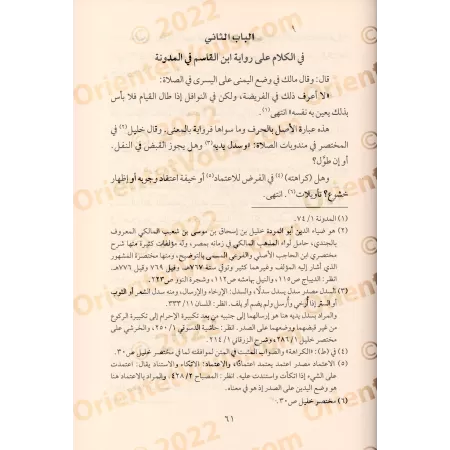 الباب الثاني
في الكلام على رواية ابن القاسم في المدونة
قال: وقال مالك في وضع اليمنى على اليسرى في الصلاة:
«لا أعرف ذلك في الفريضة، ولكن في النوافل إذا طال القيام فلا بأس
بذلك يعين به نفسه» انتهى(١).
هذه عبارة الأصل بالحرف وما سواها فرواية بالمعنى. وقال خليل(٢) في
المختصر في مندوبات الصلاة: «وسدل يديه(٣) وهل يجوز القبض في النفل.
أو إن طوَّل؟
وهل (كراهته)(٤) في الفرض للاعتماد(٥) أو خيفة اعتقاد وجوبه أو إظهار
خشوع؟ تأويلات(٦). انتهى.
(١) المدونة ٧٤/١.
(٢) هو ضياء الدين أبو المودة خليل بن إسحاق بن موسى بن شعيب المالكي المعروف
بالجندي، حامل لواء المذهب المالكي في زمانه بمصر، وله مؤلفات كثيرة منها شرح
مختصري ابن الحاجب الأصلي والفرعي المسمى بالتوضيح، ومنها مختصره المشهور
الذي أشار إليه المؤلف وغيرهما كثير وتوفي سنة ٧٦٧هـ وقيل ٧٦٩ وقيل ٧٧٦هـ.
انظر: الديباج ص١١٥، والنيل بهامشه ص١١٢، وشجرة النور ص٢٢٣.
(٣) السدل مصدر سدل يسدل سدلًا، والسدل: الإرخاء والإرسال، ومنه سدل الشعر أو الثوب
أو الستر إذا أرخي وأرسل ولم يضم أو يلف. انظر: اللسان ٣٣٣/١١.
والمراد بسدل يديه هنا هو إرسالهما إلى جنبيه من بعد تكبيرة الإحرام إلى تكبيرة الركوع
من غير قبضهما ووضعهما على الصدر. انظر: حاشية الدسوقي ٢٥٠/١، والخرشي على
خليل ٢٨٦/١، وشرح الزرقاني ٢١٤/١.
(٤) في (ط): «الكراهة» والصواب المثبت في المتن لموافقته لما في مختصر خليل ص٣٠.
(٥) الاعتماد مصدر اعتمد يعتمد اعتمادًا، والاعتماد: الاتكاء والاستناد يقال: اعتمدت
على الشيء إذا اتكأت واستندت عليه. انظر: المصباح ٤٢٨/٢، والمراد بالاعتماد هنا
هو وضع اليدين على الصدر إذ هو في معناه.
(٦) مختصر خليل ص٣٠.
٦١